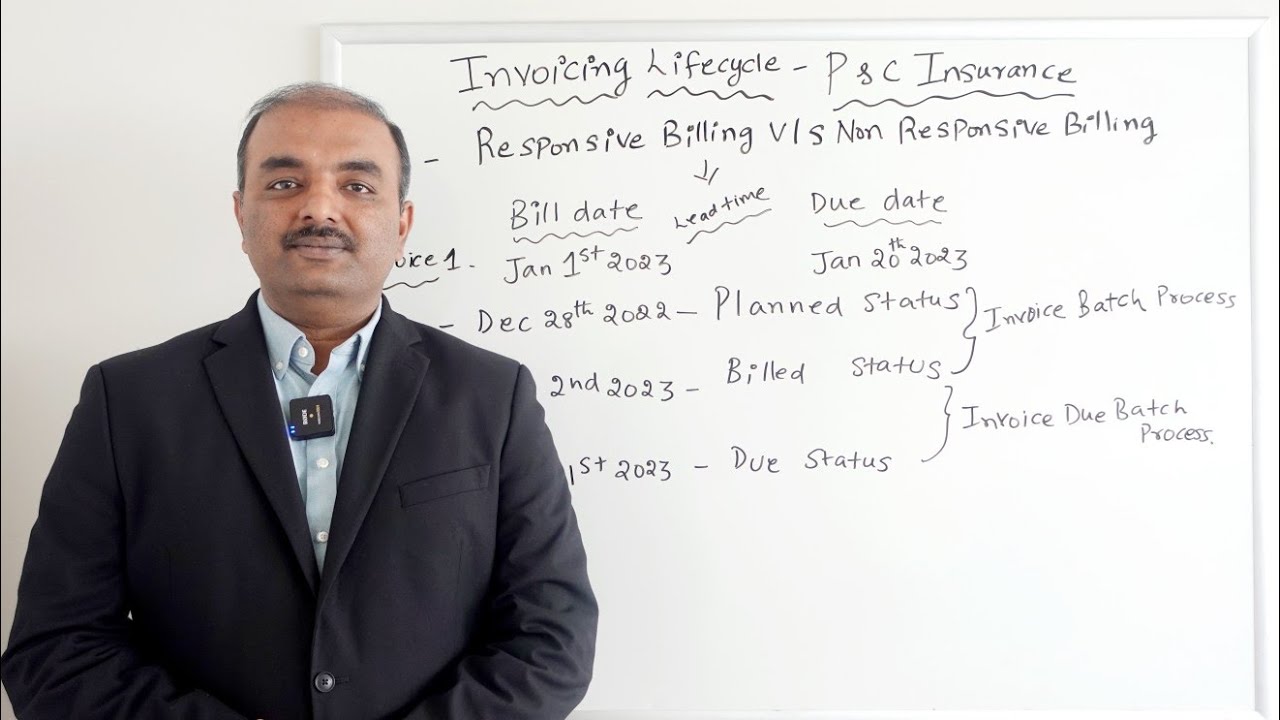 Invoicing Lifecycle - P & C Insurance
- Responsive Billing V/s Non Responsive Billing
Bill date Lead time Due date
oice 1. Jan 1st 2023 Jan 20th 2023
- Dec 28th 2022 - Planned Status } Invoice Batch Process
2nd 2023 - Billed Status
} Invoice Due Batch
Process.
1st 2023 - Due Status